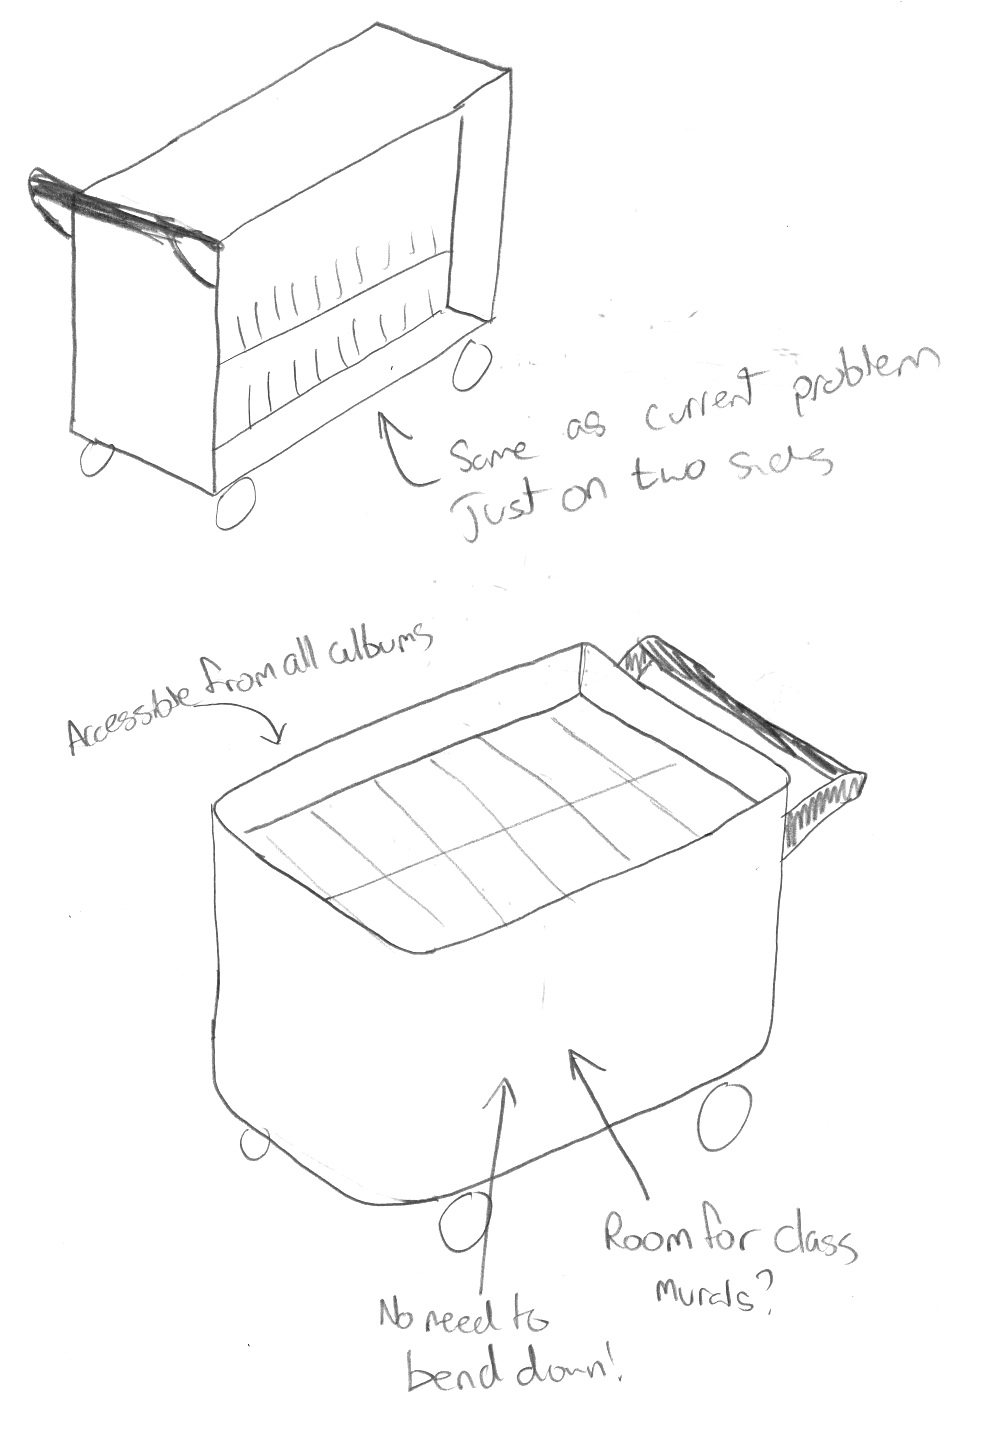 Same as current problem
Just on two sides
Accessible from all albums
Room for class
murals?
No need to
bend down!